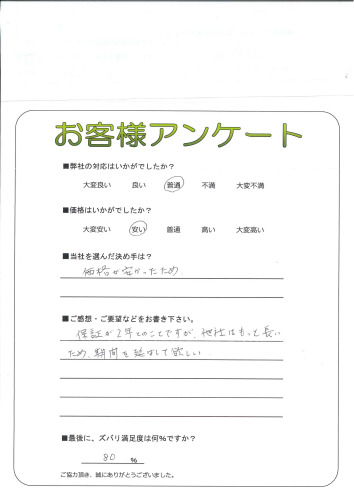 お客様アンケート
■弊社の対応はいかがでしたか？
大変良い 良い 普通 不満 大変不満
■価格はいかがでしたか？
大変安い 安い 普通 高い 大変高い
■当社を選んだ決め手は？
価格が安かったため
■ご感想・ご要望などをお書き下さい。
保証が2年とのことですが、他社はもっと長い
ため、期間を延ばして欲しい
■最後に、ズバリ満足度は何％ですか？
80 %
ご協力頂き、誠にありがとうございました。